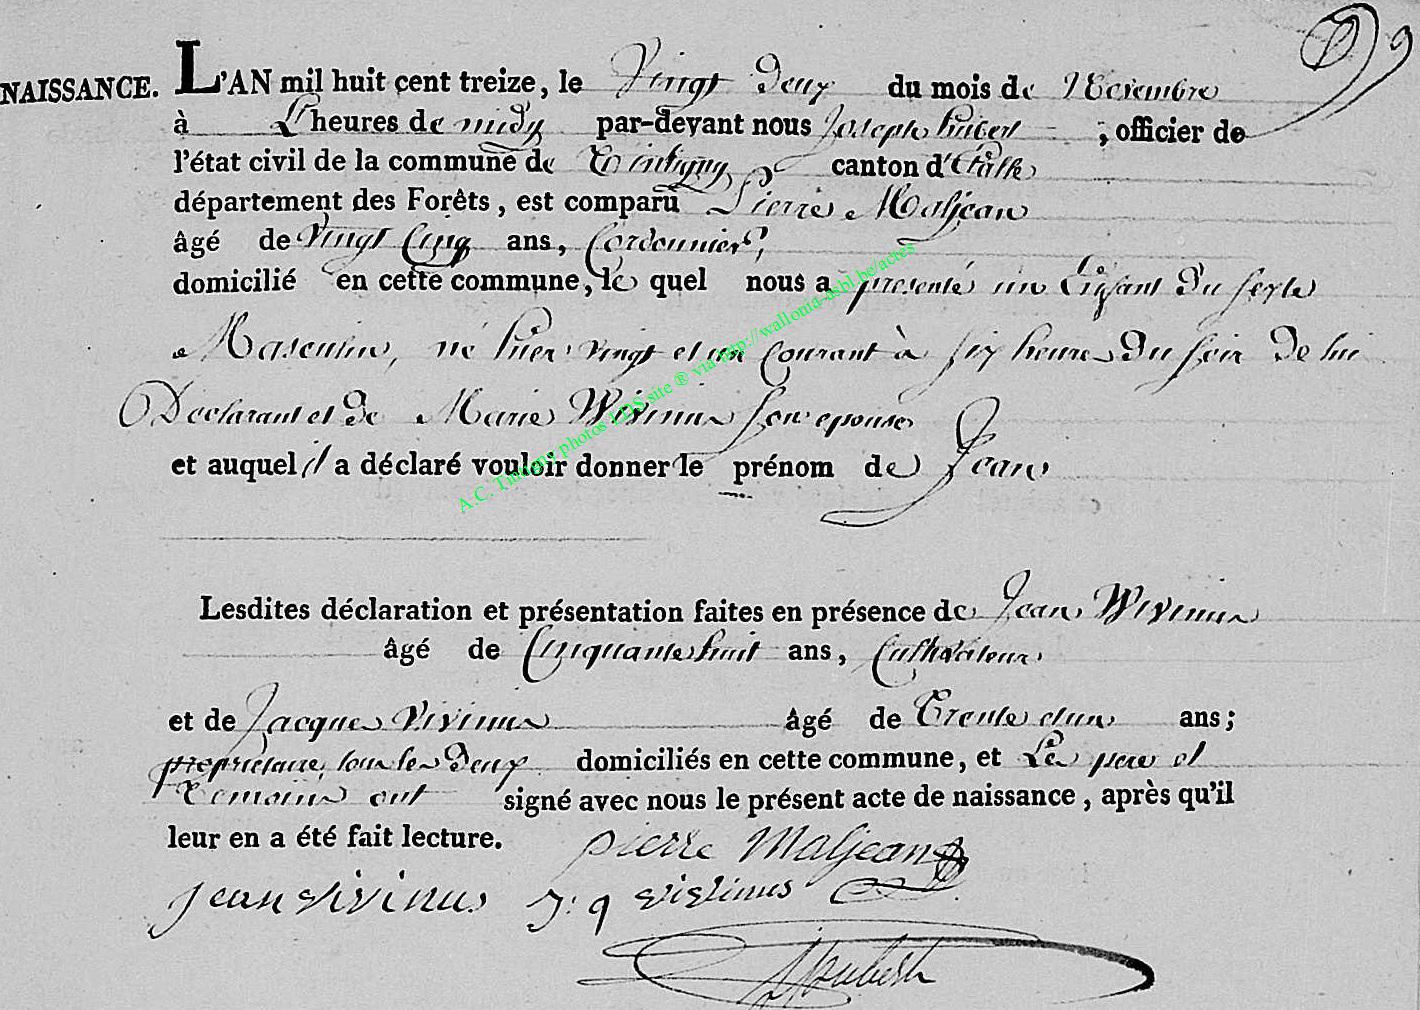 NAISSANCE. L'AN mil huit cent treize, le Vingt Deux du mois de Novembre
à L'heures de midy par-devant nous Joseph hubert, officier de
l'état civil de la commune de Tintigny canton d'Etalle
département des Forêts, est comparu Pierre Maljean
âgé de Vingt Cinq ans, Cordonnier,
domicilié en cette commune, le quel nous a presenté un Enfant Du sexe
Masculin, né hier vingt et un Courant à six heures Du soir De lui
Declarant et de Marie Wivinus son epouse
et auquel il a déclaré vouloir donner le prénom de Jean
Lesdites déclaration et présentation faites en présence de Jean Wivinus
âgé de Cinquante huit ans, Cultivateur
et de Jacque Vivinus âgé de Trente et un ans;
propriétaire, tous les Deux domiciliés en cette commune, et Les pere et
Temoins ont signé avec nous le présent acte de naissance, après qu'il
leur en a été fait lecture. pierre Maljean
jean vivinus J: q vivinus
Hubert
A.C. Tintigny photos LDS site ® via http://wallonia-asbl.be/actes